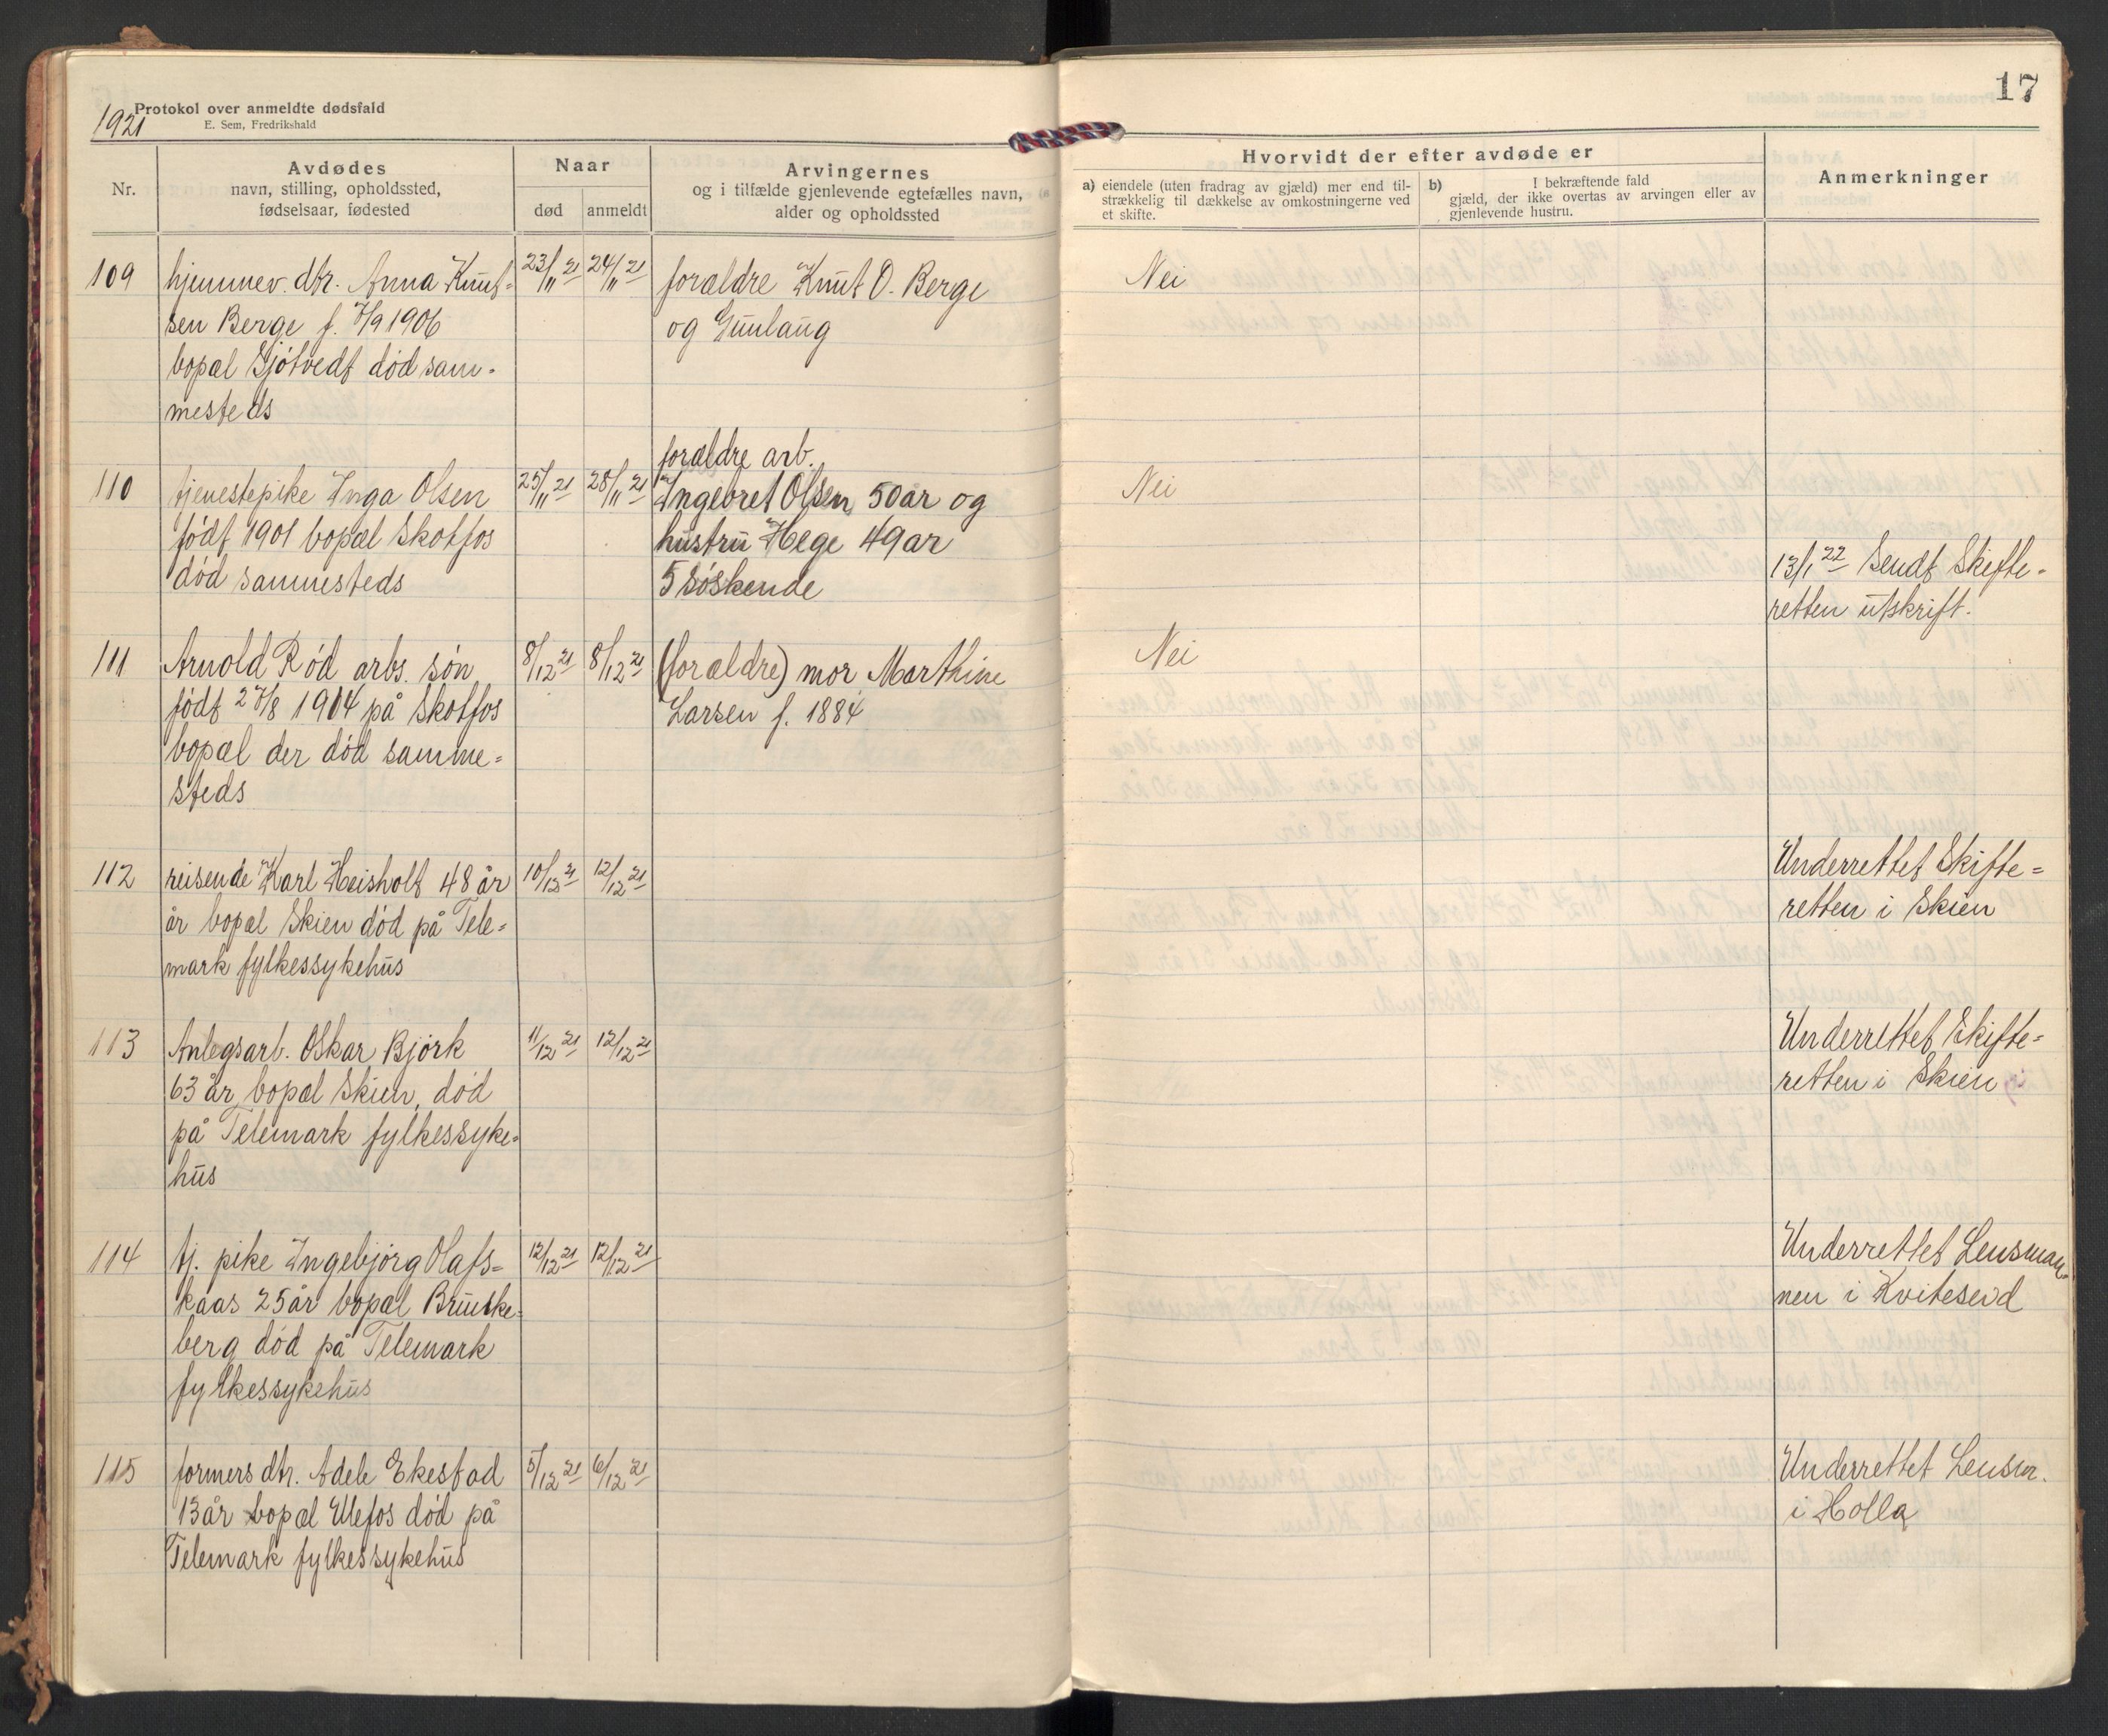 17
1921
Protokol over anmeldte dødsfald
E. Sem, Fredrikshald
Nr.
Avdødes
navn, stilling, opholdssted,
fødselsaar, fødested
Naar
død
anmeldt
Arvingernes
og i tilfælde gjenlevende egtefælles navn,
alder og opholdssted
Hvorvidt der efter avdøde er
a) eiendele (uten fradrag av gjæld) mer end til-
strækkelig til dækkelse av omkostningerne ved
et skifte.
b) I bekræftende fald
gjæld, der ikke overtas av arvingen eller av
gjenlevende hustru.
Anmerkninger
109
hjemmev. dtr. Anna Knut-
sen Berge f. 7/9 1906
bopæl Gjótvedt dód sam-
mesteds
23/11 21
24/11 21
forældre Knut O. Berge
og Gunlaug
Nei
110
tjenestepike Inga Olsen
fódt 1901 bopæl Skotfos
dód sammesteds
25/11 21
28/11 21
forældre arb.
Ingebret Olsen 50 ar og
hustru Hege 49 ar
5 sóskende
Nei
13/1 22 Sendt Skifte-
retten utskrift.
111
Arnold Ród arbs. són
fódt 27/8 1914 på Skotfos
bopæl der dód samme=
steds
8/12 21
8/12 21
(forældre) mor Marthine
Larsen f. 1884
Nei
112
reisende Karl Heisholt 48 år
år bopæl Skien dód på Tele=
mark fylkessykehus
10/12 21
12/12 21
Underrettet Skifte=
retten i Skien
113
Anlegsarb. Oskar Bjórk
63 år, bopæl Skien, dód
på Telemark fylkessyke=
hus
11/12 21
12/12 21
Underrettet Skifte=
retten i Skien
114
tj. pike Ingebjórg Olafs=
kaas 25 år bopæl Brunke=
berg dód på Telemark
fylkessykehus
12/12 21
12/12 21
Underrettet Lensman-
nen i Kviteseid
115
formers dtr. Adele Ekestad
13 år bopæl Ulefos dód på
Telemark fylkessykehus
5/12 21
6/12 21
Underrettet Lensm.
i Holla